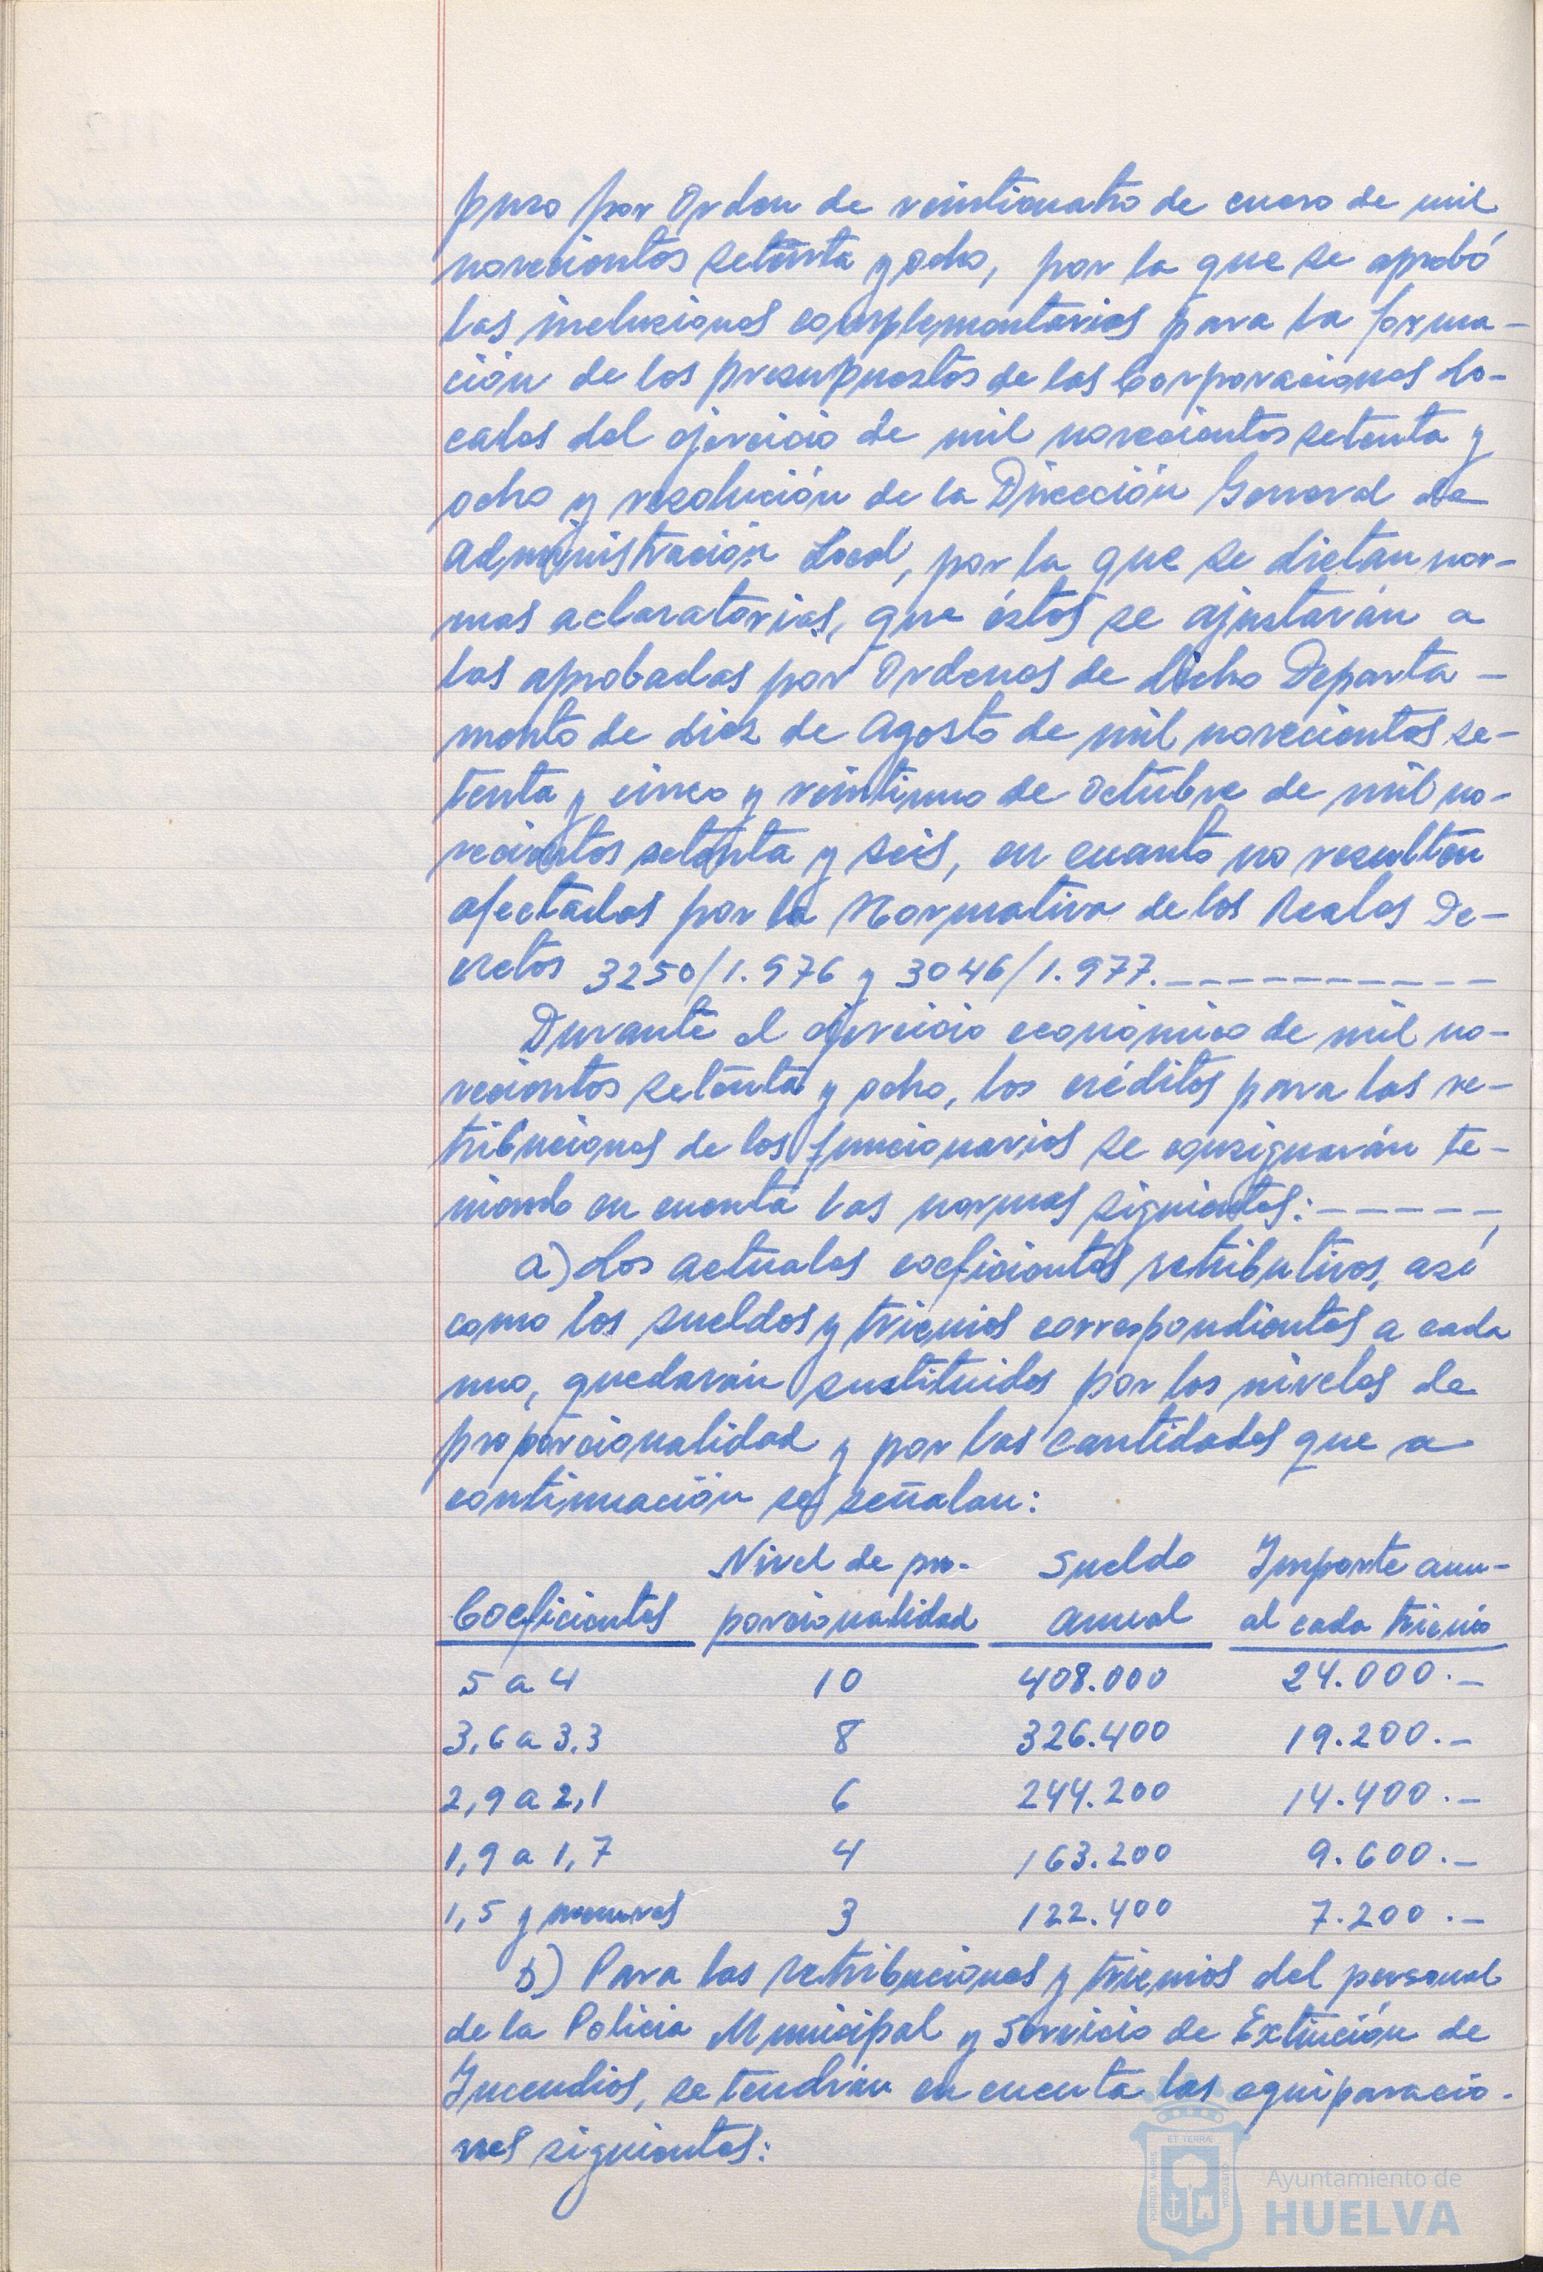 puso por Orden de veinticuatro de enero de mil
novecientos setenta y ocho, por la que se aprobó
las inclusiones complementarias para la forma-
ción de los presupuestos de las Corporaciones Lo-
cales del ejercicio de mil novecientos setenta y
ocho y resolución de la Dirección General de
Administración Local, por la que se dictan nor-
mas aclaratorias, que éstos se ajustarán a
las aprobadas por Ordenes de dicho Departa-
mento de diez de Agosto de mil novecientos se-
tenta y cinco y veintiuno de Octubre de mil no-
vecientos setenta y seis, en cuanto no resulten
afectadas por la Normativa de los Reales De-
cretos 3250/1.976 y 3046/1.977.
Durante el ejercicio económico de mil no-
vecientos setenta y ocho, los créditos para las re-
tribuciones de los funcionarios se consignarán te-
niendo en cuenta las normas siguientes:
a) Los actuales coeficientes retributivos, así
como los sueldos y trienios correspondientes a cada
uno, quedarán sustituidos por los niveles de
proporcionalidad y por las cantidades que a
continuación se señalan:
Nivel de pro- Sueldo Importe anu-
Coeficientes porcionalidad anual al cada trienio
5 a 4 10 408.000 24.000.-
3,6 a 3,3 8 326.400 19.200.-
2,9 a 2,1 6 244.200 14.400.-
1,9 a 1,7 4 163.200 9.600.-
1,5 y menores 3 122.400 7.200.-
b) Para las retribuciones y trienios del personal
de la Policia Municipal y Servicio de Extinción de
Incendios, se tendrán en cuenta las equiparacio-
nes siguientes:
PORTUS MARIS
ET TERRÆ
CUSTODIA
Ayuntamiento de
HUELVA